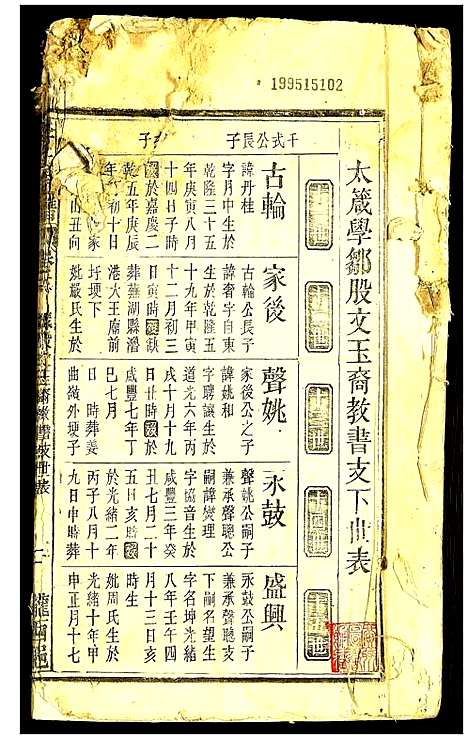 199515102
太箴學鄒股文玉裔教書支下世表
千弍公長子
古輪
諱丹桂
字月中生於
乾隆三十五
年庚寅八月
十四日子時
歿於嘉慶二
乾五年庚辰
年 初十日
山丑向
家後
古輪公長子
諱奢字自東
生於乾隆五
十九年甲寅
十二月初三
日寅時歿缺
葬蕪湖縣澛
港大王廟前
圩埂下
妣嚴氏生於
聲姚
家後公之子
諱姚和
字聘讓生於
道光六年丙
戌十月十九
日丑時歿於
咸豐七年丁
巳七月
日 時葬姜
曲嶺外埂子
永鼓
聲姚公嗣子
兼承聲聰公
嗣諱燮理
字協音生於
咸豐三年癸
丑七月二十
五日亥時歿
於光緒二年
丙子八月十
九日申時葬
盛興
永鼓公嗣子
兼承聲聽支
下嗣名望生
字名坤光緒
八年壬午四
月十三日亥
時生
妣周氏生於
光緒十年甲
申正月十七